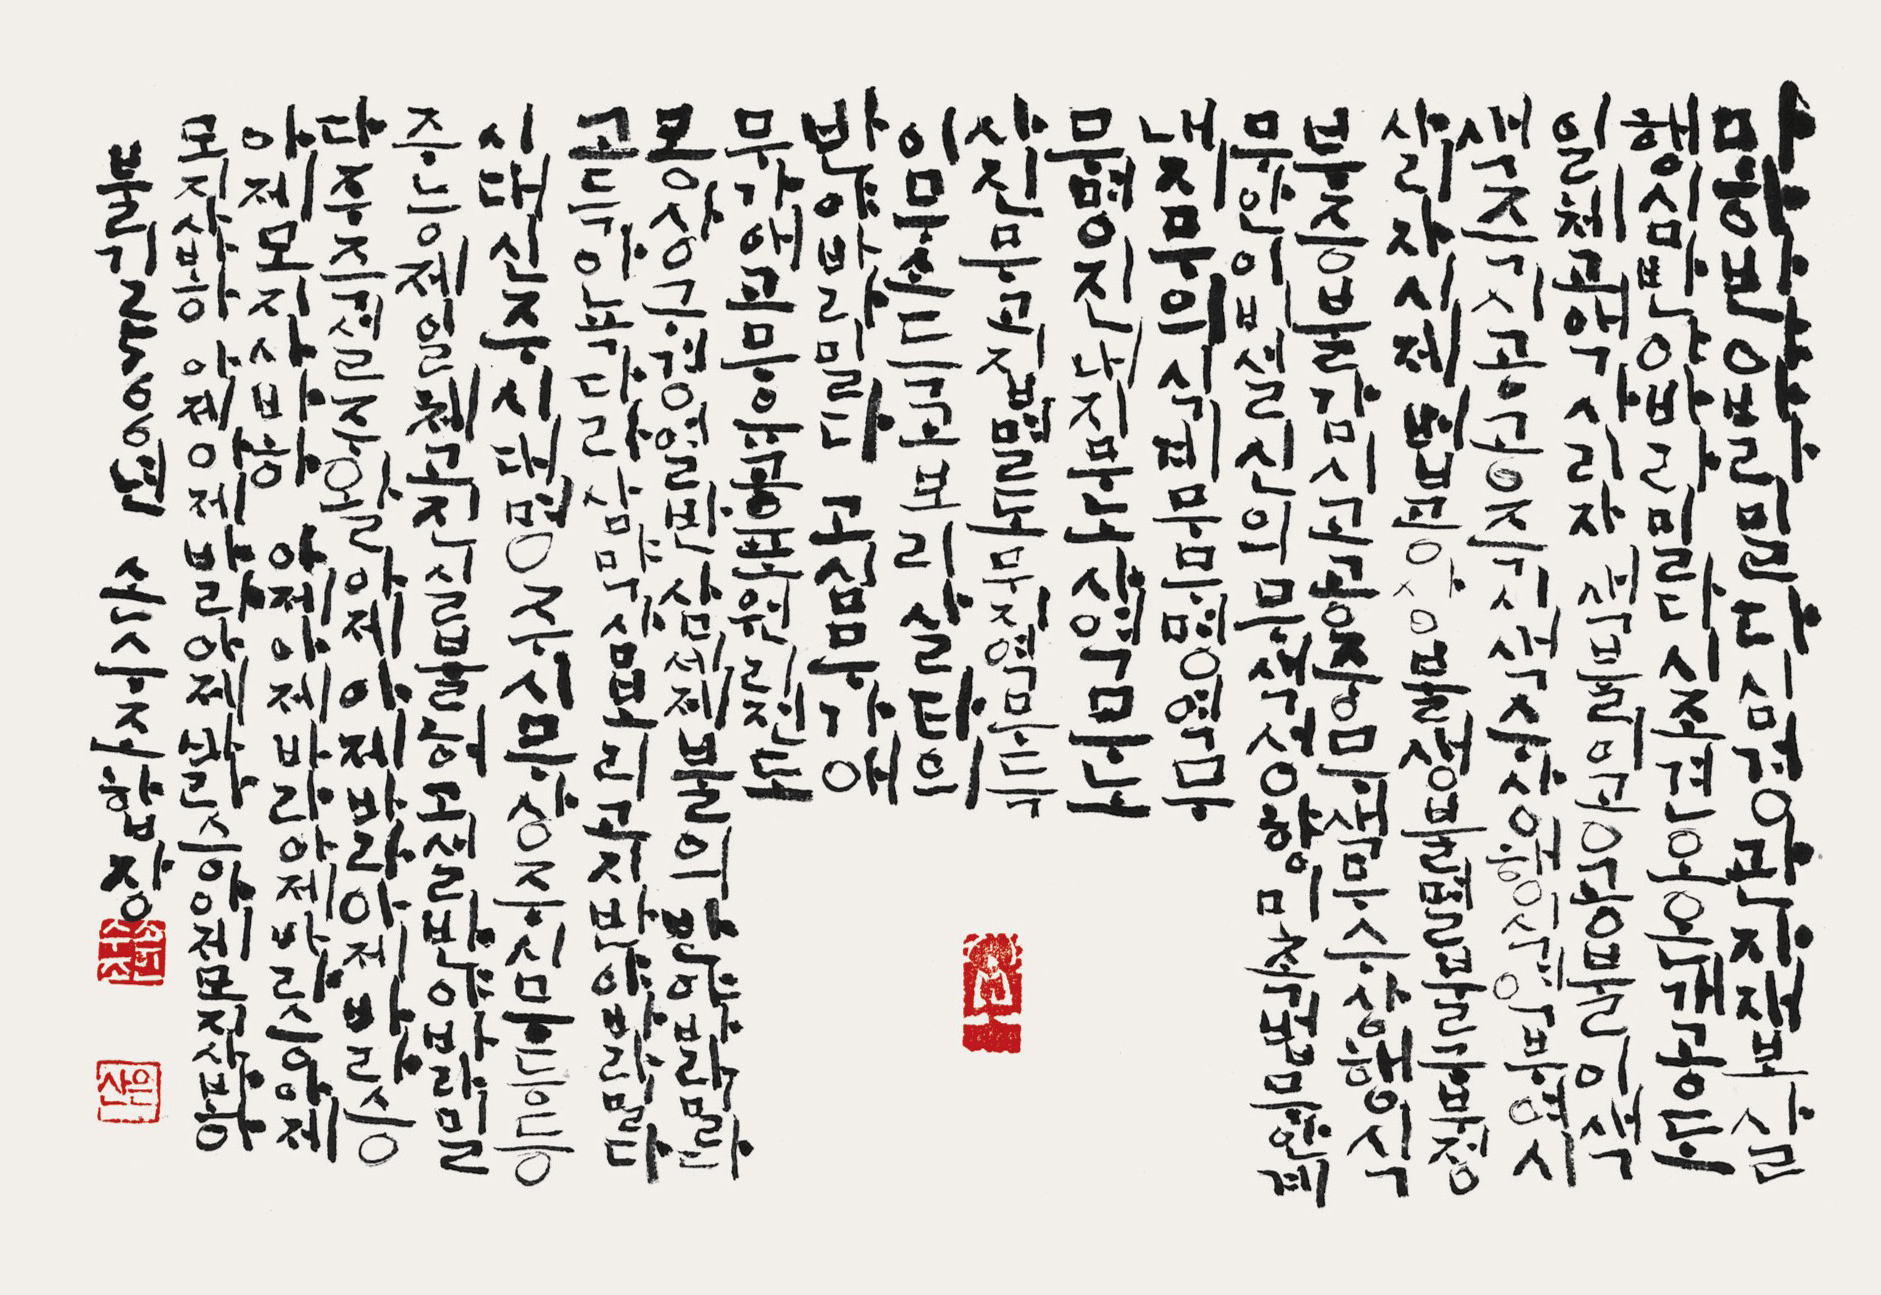 마하반야바라밀다심경관자재보살
행심반야바라밀다시조견오온개공도
일체고액사리자 색불이공공불이색
색즉시공공즉시색수상행식역부여시
사리자시제법공상불생불멸불구부정
부증불감시고공중무색무수상행식
무안이비설신의무색성향미촉법무안계
내지무의식계무무명역무
무명진내지무노사역무노
사진무고집멸도무지역무득
이무소득고보리살타의
반야바라밀다 고심무가애
무가애고무유공포원리전도
몽상구경열반삼세제불의반야바라밀다
고득아뇩다라삼먁삼보리고지반야바라밀다
시대신주시대명주시무상주시무등등
주능제일체고진실불허고설반야바라밀
다주즉설주왈아제아제바라아제바라승
아제모지사바하 아제아제바라아제바라승아제
모지사바하 아제아제바라아제바라승아제모지사바하
불기2566년 손수조합장
손수조
은산